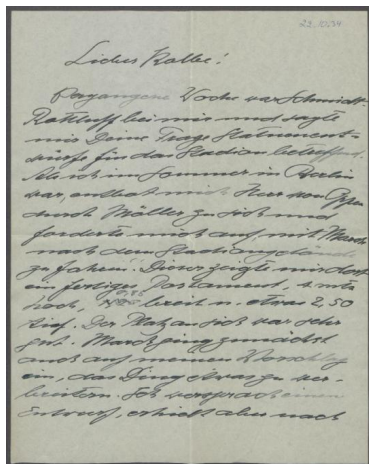 22.10.34
Lieber Kolbe!
Vergangene Woche war Schmidt-
Rottluff bei mir und sagte
mir Deine Frage Statuenent-
würfe für das Stadion betreffend.
Als ich im Sommer in Berlin
war, entbot mich Herr von Oppen
durch Möller zu sich und
forderte mich auf, mit March
nach dem Stadiongelände
zu fahren. Dieser zeigte mir dort
ein fertiges Postament, 2 mtr
hoch, breit u. etwas 2,50
tief. Der Platz an sich war sehr
gut. March ging zunächst
auch auf meinen Vorschlag
ein, das Ding etwas zu ver-
breitern. Ich versprach einen
Entwurf, erhielt aber nach